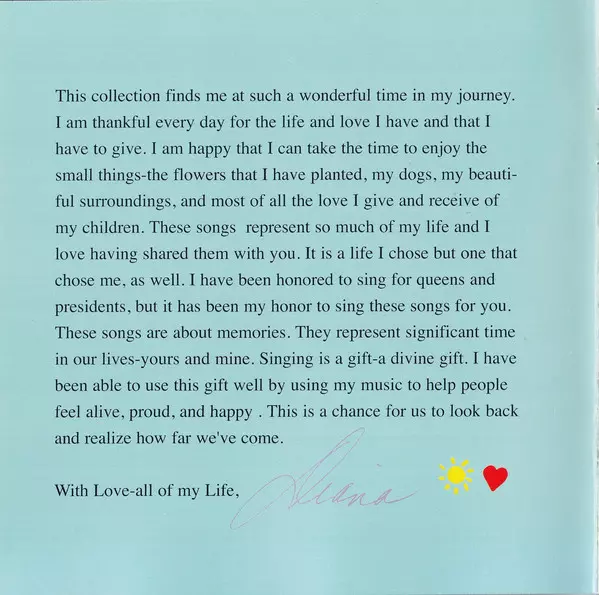 This collection finds me at such a wonderful time in my journey.
I am thankful every day for the life and love I have and that I
have to give. I am happy that I can take the time to enjoy the
small things-the flowers that I have planted, my dogs, my beauti-
ful surroundings, and most of all the love I give and receive of
my children. These songs  represent so much of my life and I
love having shared them with you. It is a life I chose but one that
chose me, as well. I have been honored to sing for queens and
presidents, but it has been my honor to sing these songs for you.
These songs are about memories. They represent significant time
in our lives-yours and mine. Singing is a gift-a divine gift. I have
been able to use this gift well by using my music to help people
feel alive, proud, and happy . This is a chance for us to look back
and realize how far we've come.
With Love-all of my Life, Diana